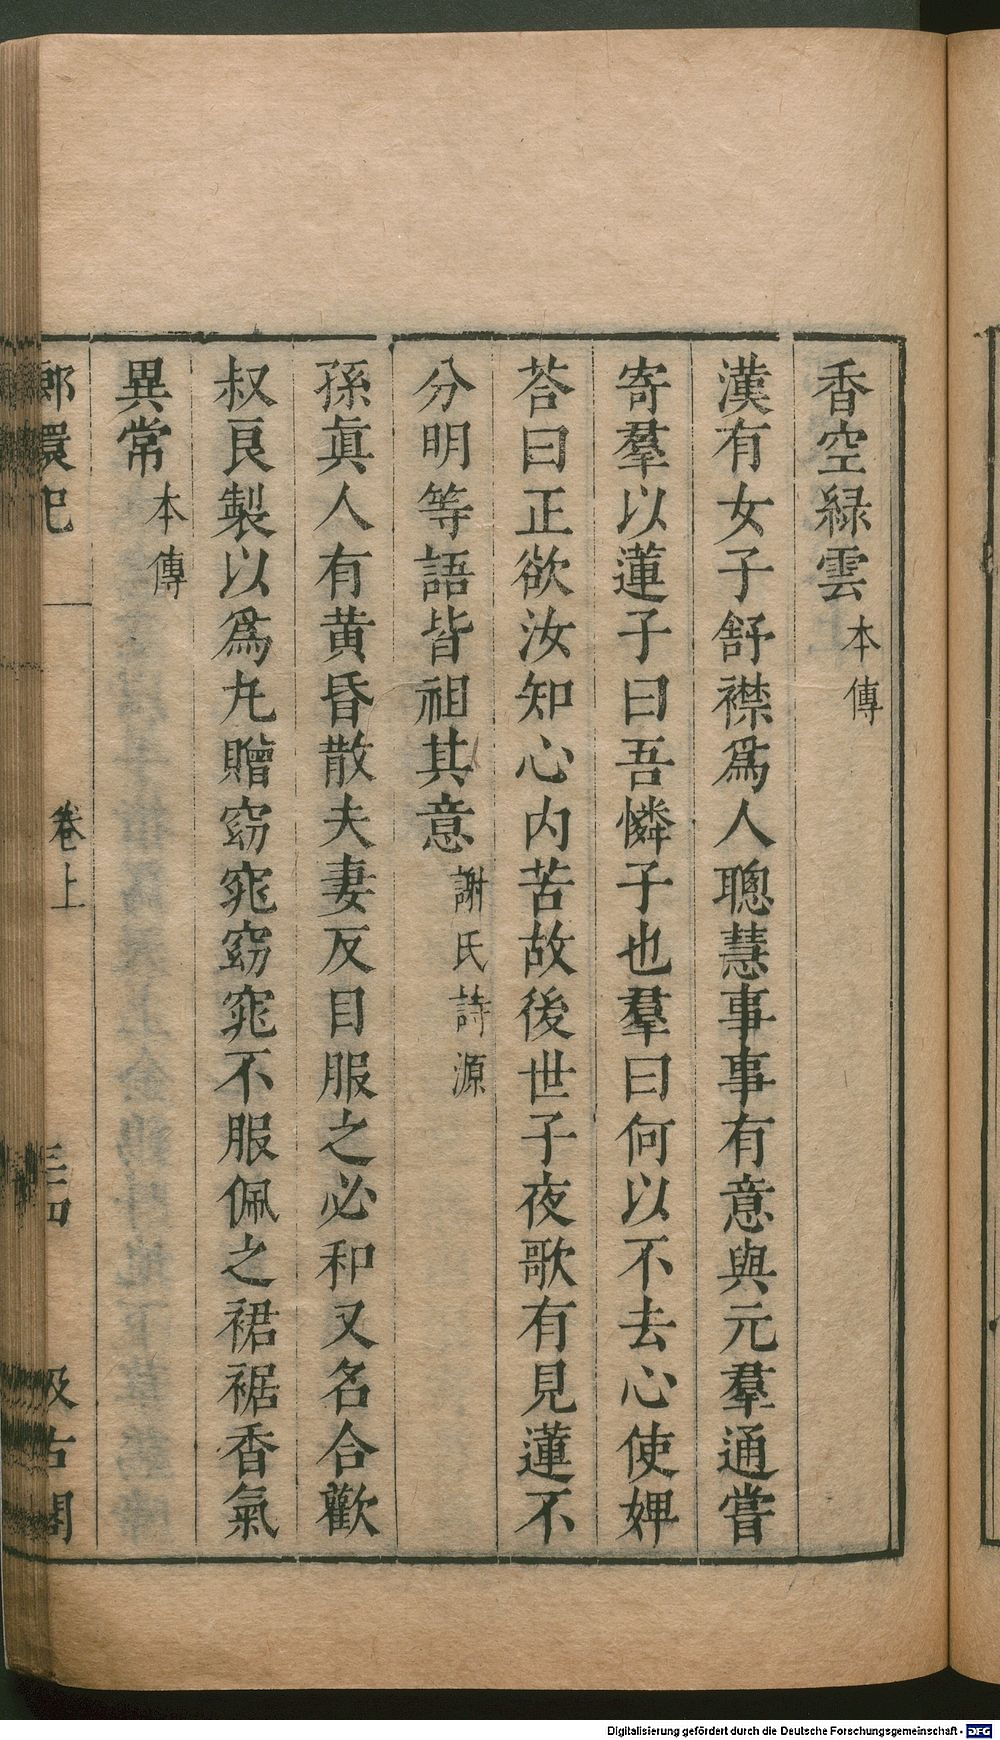 香空緑雲本傳
漢有女子舒襟爲人聰慧事事有意與元羣通嘗
寄羣以蓮子曰吾憐子也羣曰何以不去心使婢
荅曰正欲汝知心内苦故後世子夜歌有見蓮不
分明等語皆祖其意謝氏詩源
孫眞人有黄昏散夫妻反目服之必和又名合歡
叔良製以爲丸贈窈窕窈窕不服佩之裙裾香氣
異常本傳
卷上
汲古閣
Digitalisierung gefördert durch die Deutsche Forschungsgemeinschaft - DFG